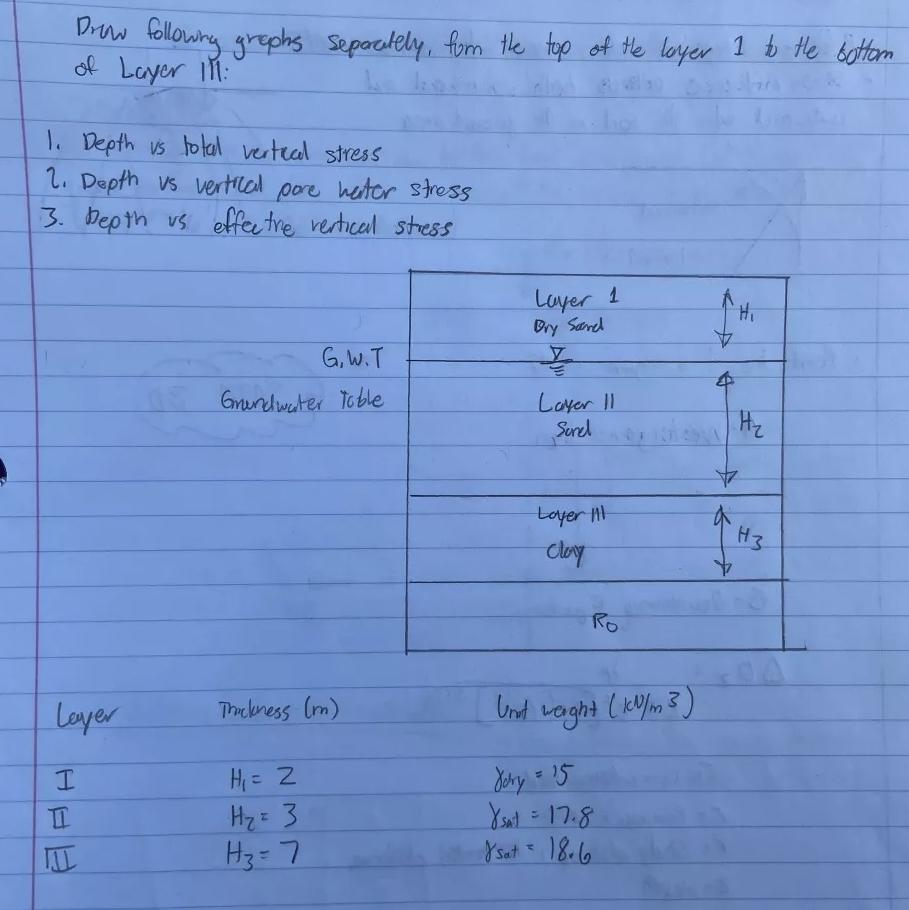 Draw following graphs separately, from the top of the layer 1 to the bottom
of Layer III:
1. Depth vs total vertical stress
2. Depth vs vertical pore water stress
3. Depth vs effective vertical stress
Layer 1
Dry Sand
H1
G.W.T
Groundwater Table
Layer II
Sand
H2
Layer III
Clay
H3
Ro
Layer Thickness (m) Unit weight (kN/m3)
I H1 = 2 γdry = 15
II H2 = 3 γsat = 17.8
III H3 = 7 γsat = 18.6